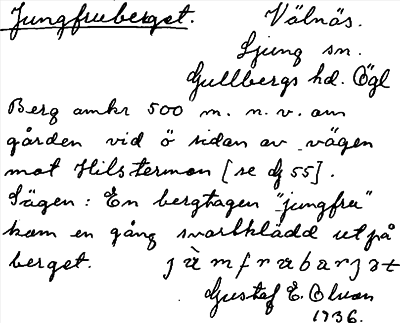 Jungfruberget. Välnäs.
Ljung sn.
Gullbergs hd. Ögl
Berg omkr 500 m. n. v. om
gården vid ö sidan av vägen
mot Hilstermon [se dg 55].
Sägen: En bergtagen "jungfru"
kom en gång svartklädd ut på
berget.
Gustaf E. Olson
1936.